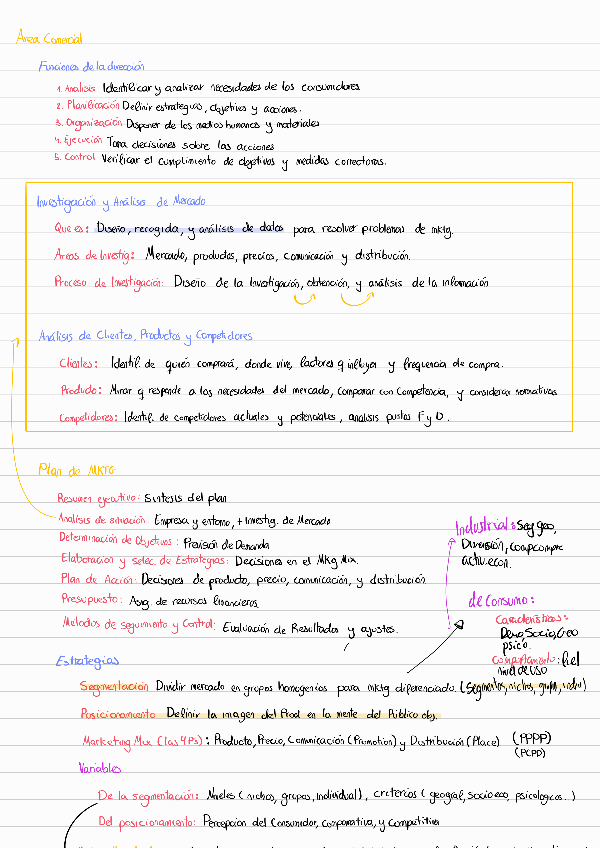 Area Comercial
Funciones de la dirección
1. Analisis Identificar y analizar necesidades de los consumidores
2. Planificación Definir estrategias, objetivos y acciones.
3. Organización Disponer de los medios humanos y materiales
4. Ejecución Toma decisiones sobre las acciones
5. Control Verificar el cumplimiento de objetivos y medidas correctoras.
Investigación y Análisis de Mercado
Que es: Diseño, recogida, y análisis de datos para resolver problemas de mktg.
Areas de Investig: Mercado, productos, precios, comunicación y distribución.
Proceso de Investigación: Diseño de la Investigación, obtención, y análisis de la información
Análisis de Clientes, Productos y Competidores
Clientes: Identif. de quién comprará, donde vive, factores q influyen y frequencia de compra.
Producto: Mirar q responde a las necesidades del mercado, comparar con Competencia, y considerar normativas
Competidores: Identif. de competidores actuales y potenciales, analisis puntos F y D.
Plan de MKTG
Resumen ejecutivo: Sintesis del plan
Analisis de situación: Empresa y entorno, + Investig. de Mercado
Determinación de Objetivos: Previsión de Demanda
Elaboracion y selec. de Estrategias: Decisiones en el Mkg Mix.
Plan de Acción: Decisiones de producto, precio, comunicación, y distribución
Presupuesto: Asig. de recursos financieros
Metodos de seguimiento y Control: Evaluación de Resultados y ajustes.
Industrial: Seg geo,
Dimensión, comp compra
activ. econ.
de Consumo:
Caracteristicas:
Demo, Socio, Geo
psico.
Comportamiento: fiel
nivel de uso
Estrategias
Segmentación Dividir mercado en grupos homogenios para mktg diferenciado. (Segmentos, nichos, grupo, indiv)
Posicionamiento Definir la imagen del Prod en la mente del Público obj.
Marketing Mix (las 4Ps): Producto, Precio, Comunicación (Promotion) y Distribución (Place) (PPPP)
(PCPD)
Variables
De la segmentación: Niveles (nichos, grupos, individual), criterios (geograf, socioeco, psicologicos..)
Del posicionamiento: Percepcion del Consumidor, corporativa, y Competitiva